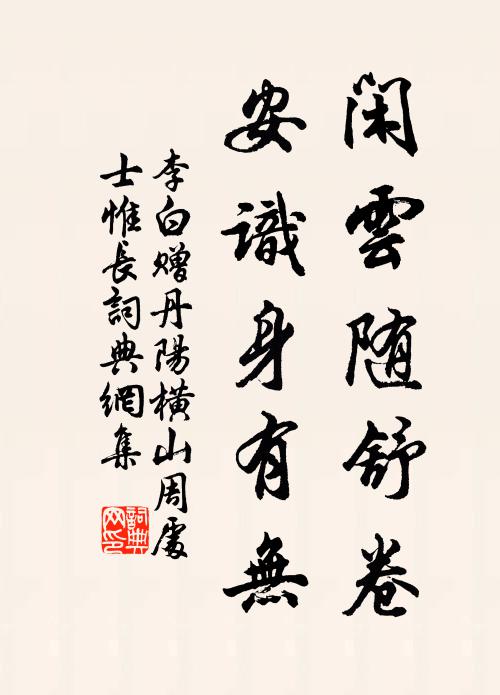 闲雲随舒卷
安識身有無
李白赠丹陽橫山周處
士惟長詞典網集
詞典
网印